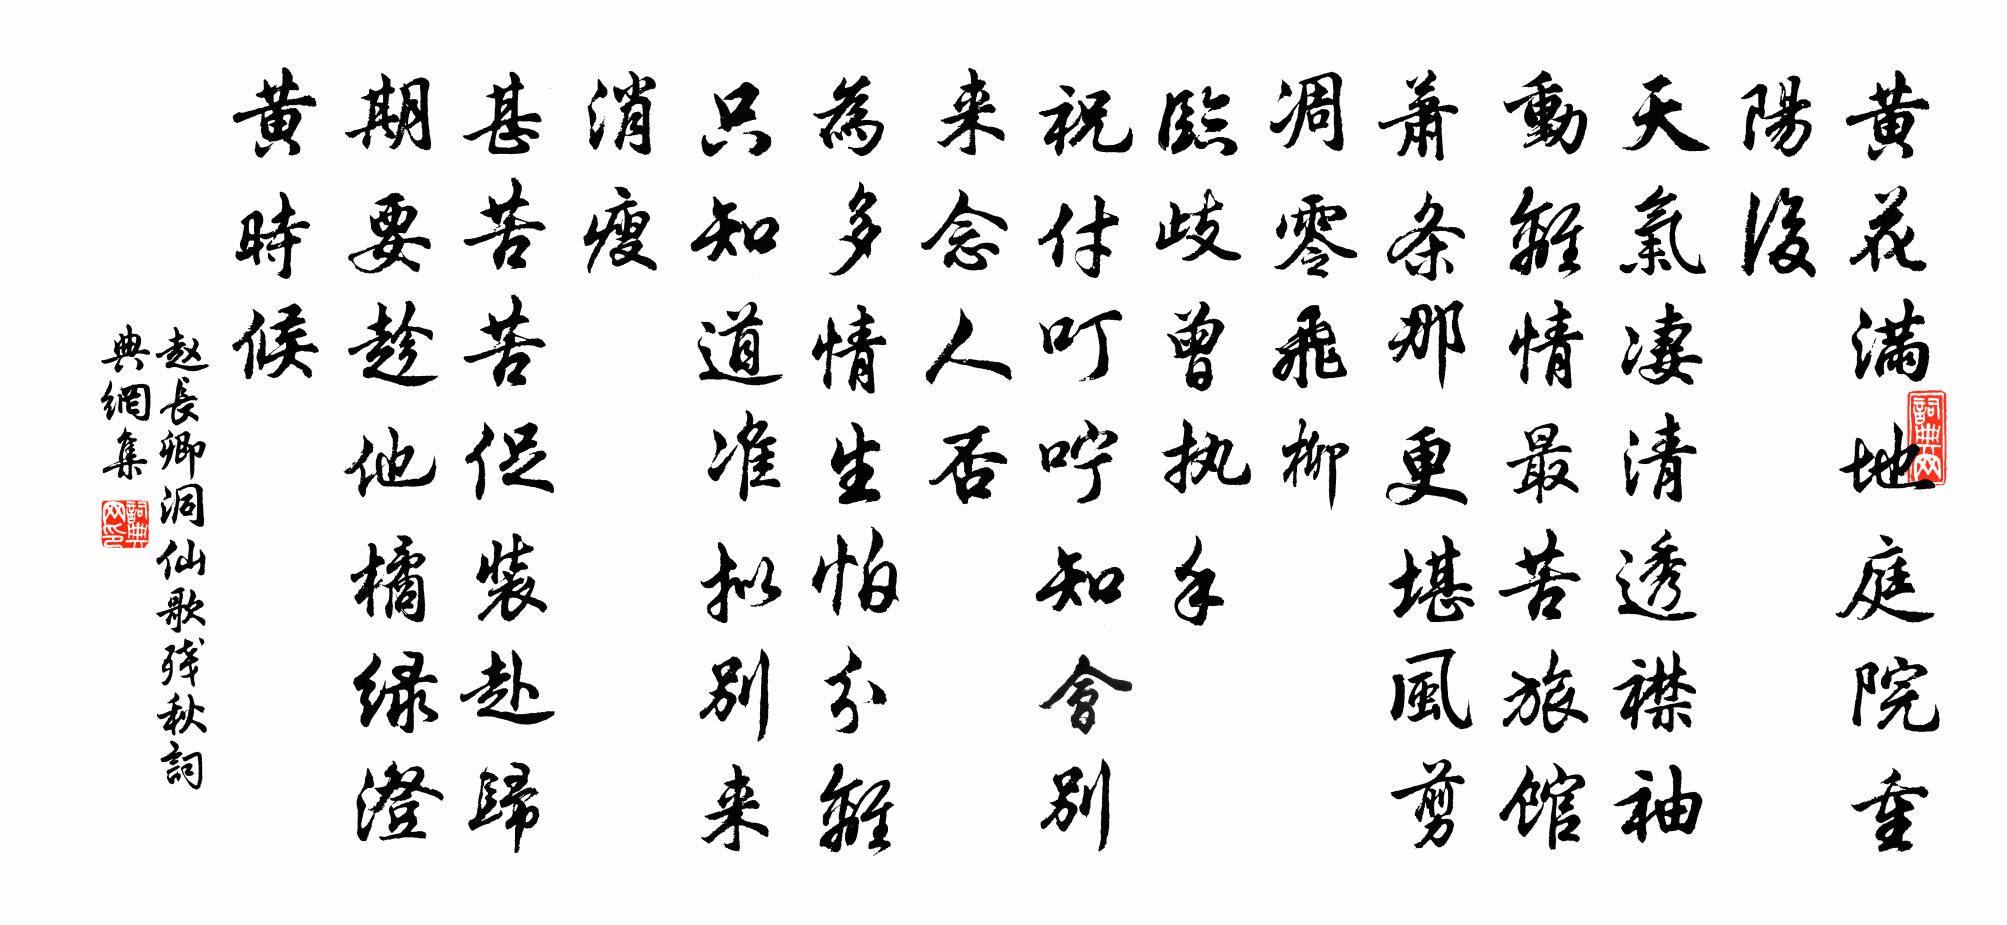 黄花满地庭院重
陽後
天氣凄清透襟袖
動離情最苦旅馆
萧条那更堪風剪
凋零飛柳
臨歧曾执手
祝付叮咛知會别
来念人否
為多情生怕分離
只知道准拟别来
消瘦
甚苦苦促装赴歸
期要趁他橘绿澄
黄時候
赵長卿洞仙歌残秋詞
典網集
詞典网
詞典网印